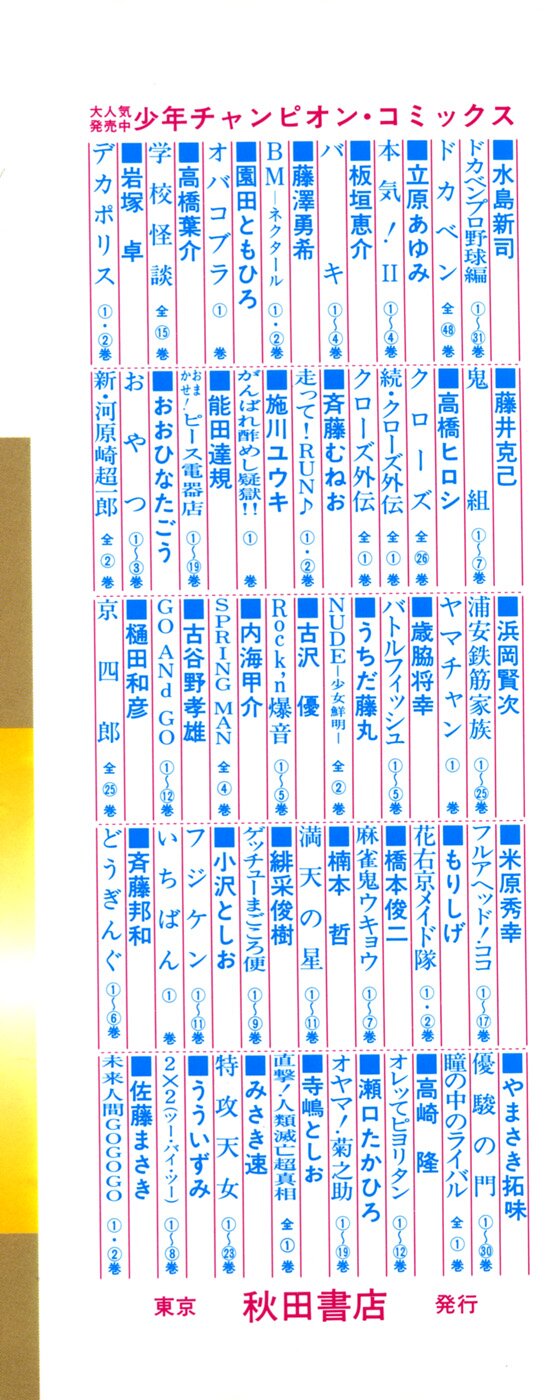 大人気
発売中
少年チャンピオン・コミックス
■水島新司
ドカベンプロ野球編 ①〜㉛巻
ドカベン 全㊽巻
■立原あゆみ
本気！Ⅱ ①〜④巻
■板垣恵介
バキ ①〜④巻
■藤澤勇希
BM―ネクタール ①・②巻
■園田ともひろ
オバコブラ ① 巻
■高橋葉介
学校怪談 全⑮巻
■岩塚 卓
デカポリス ①・②巻
■藤井克己
鬼組 ①〜⑦巻
■高橋ヒロシ
クローズ 全㉖巻
続・クローズ外伝 全①巻
クローズ外伝 全①巻
■斉藤むねお
走って！RUN♪ ①・②巻
■施川ユウキ
がんばれ酢めし疑獄!! ① 巻
■能田達規
おまかせ！ピース電器店 ①〜⑲巻
■おおひなたごう
おやつ ①〜③巻
新・河原崎超一郎 全②巻
■浜岡賢次
浦安鉄筋家族 ①〜㉕巻
ヤマチャン ① 巻
■歳脇将幸
バトルフィッシュ ①〜⑤巻
■うちだ藤丸
NUDE―少女鮮明― 全②巻
■古沢 優
Rock'n爆音 ①〜⑤巻
■内海甲介
SPRING MAN 全④巻
■古谷野孝雄
GO ANd GO ①〜⑫巻
■樋田和彦
京四郎 全㉕巻
■米原秀幸
フルアヘッド！ココ ①〜⑰巻
■もりしげ
花右京メイド隊 ①・②巻
■橋本俊二
麻雀鬼ウキョウ ①〜⑦巻
■楠本 哲
満天の星 ①〜⑪巻
■緋采俊樹
ゲッチューまごころ便 ①〜⑨巻
■小沢としお
フジケン ①〜⑪巻
いちばん ① 巻
■斉藤邦和
どうぎんぐ ①〜⑥巻
■やまさき拓味
優駿の門 ①〜㉚巻
瞳の中のライバル 全①巻
■高崎 隆
オレッてピヨリタン ①〜⑫巻
■瀬口たかひろ
オヤマ！菊之助 ①〜⑲巻
■寺嶋としお
直撃！人類滅亡超真相 全①巻
■みさき速
特攻天女 ①〜㉓巻
■うういずみ
2×2(ツー・バイ・ツー) ①〜⑧巻
■佐藤まさき
未来人間GOGOGO ①・②巻
東京 秋田書店 発行